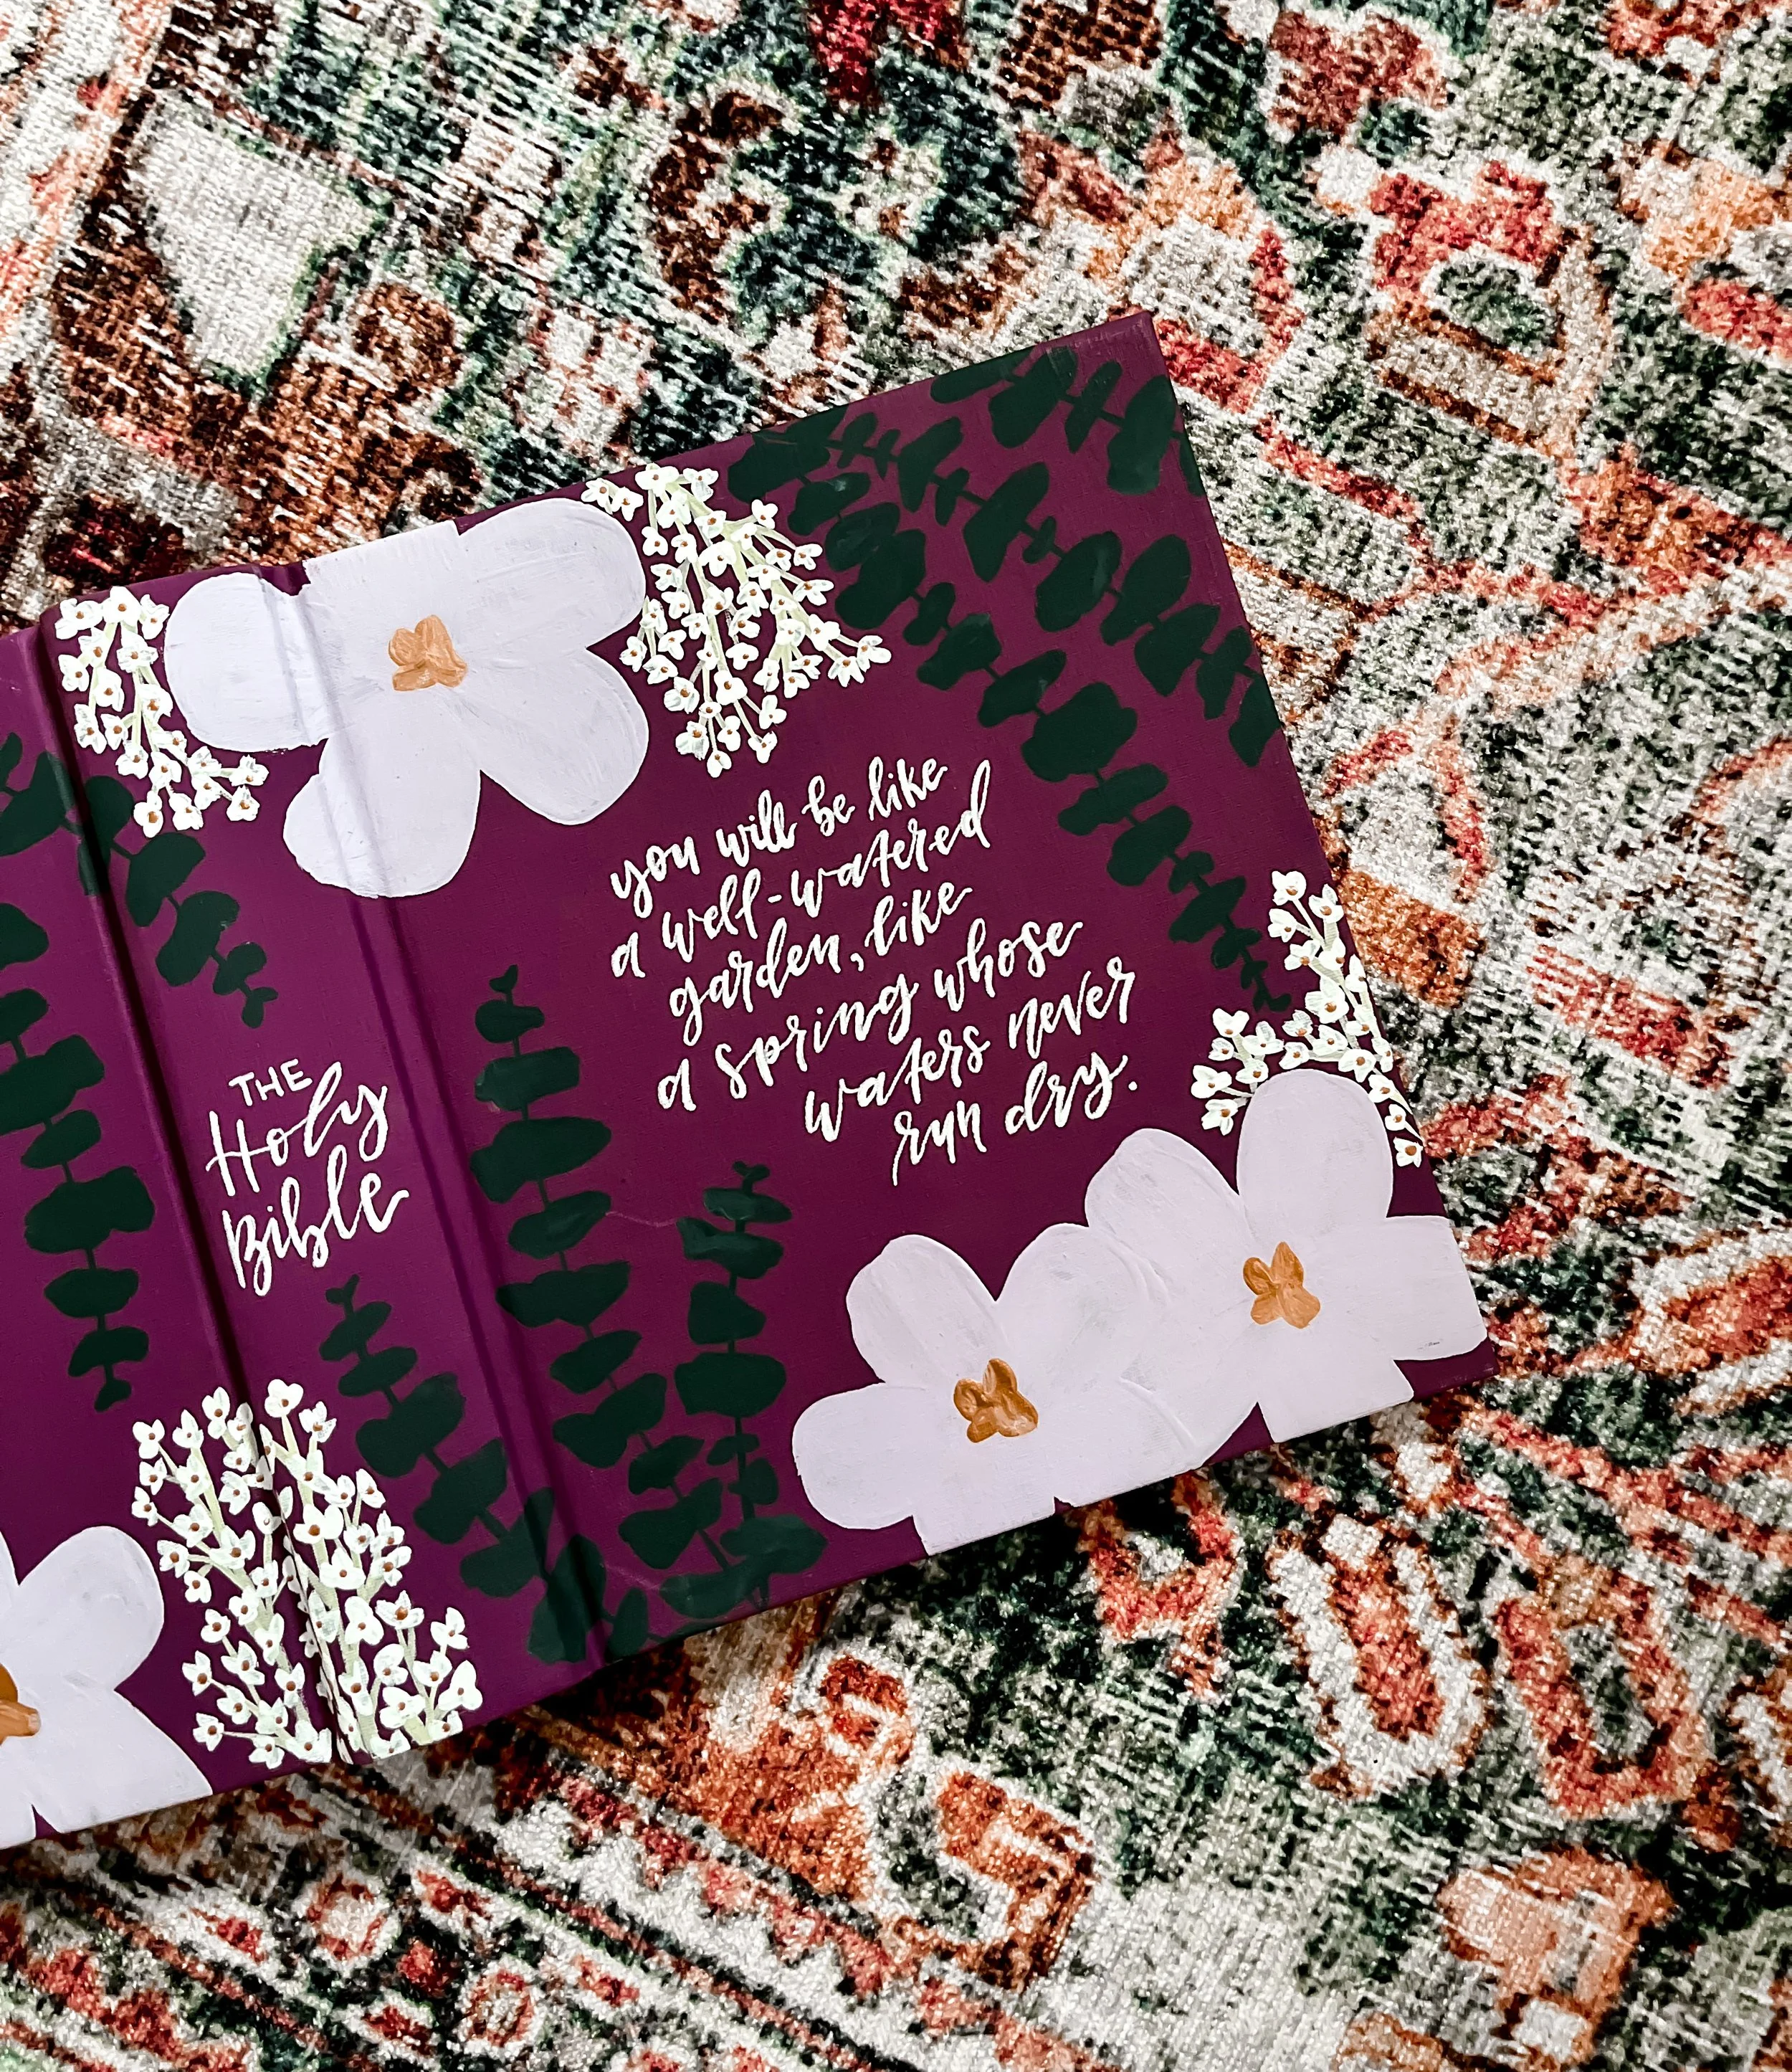 THE
Holy
Bible
you will be like
a well-watered
garden, like
a spring whose
waters never
run dry.